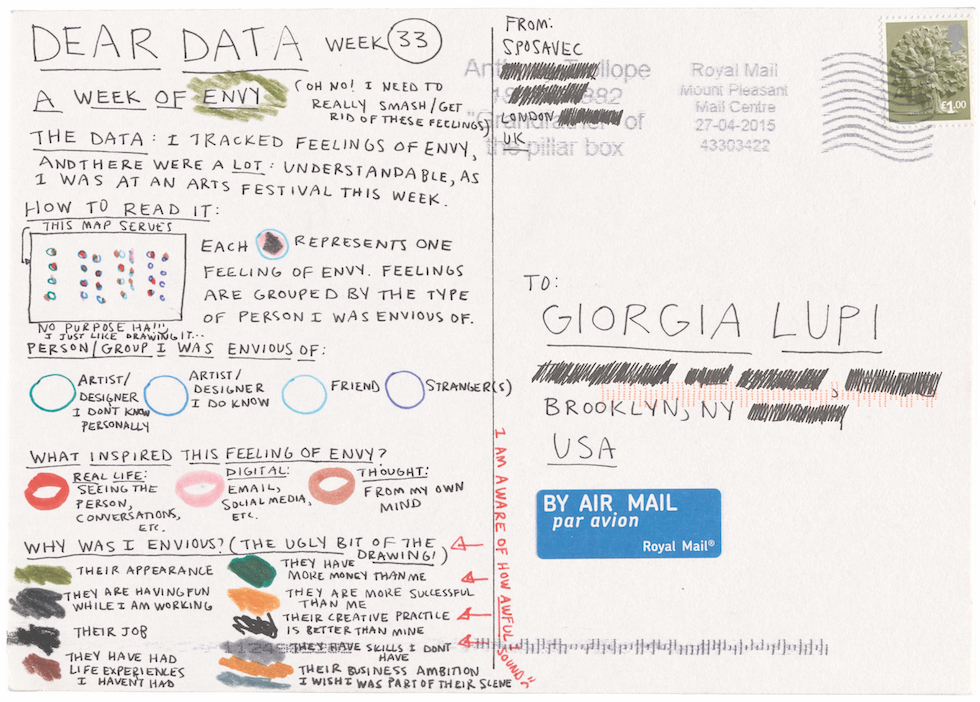 DEAR DATA WEEK 33
A WEEK OF ENVY (OH NO! I NEED TO
REALLY SMASH/GET
RID OF THESE FEELINGS)
THE DATA: I TRACKED FEELINGS OF ENVY,
AND THERE WERE A LOT: UNDERSTANDABLE, AS
I WAS AT AN ARTS FESTIVAL THIS WEEK.
HOW TO READ IT:
THIS MAP SERVES
NO PURPOSE HA!!!,
I JUST LIKE DRAWING IT...
EACH REPRESENTS ONE
FEELING OF ENVY. FEELINGS
ARE GROUPED BY THE TYPE
OF PERSON I WAS ENVIOUS OF.
PERSON/GROUP I WAS ENVIOUS OF:
ARTIST/
DESIGNER
I DONT KNOW
PERSONALLY
ARTIST/
DESIGNER
I DO KNOW
FRIEND
STRANGER(S)
WHAT INSPIRED THIS FEELING OF ENVY?
REAL LIFE:
SEEING THE
PERSON,
CONVERSATIONS,
ETC.
DIGITAL:
EMAIL,
SOCIAL MEDIA,
ETC.
THOUGHT:
FROM MY OWN
MIND
WHY WAS I ENVIOUS? (THE UGLY BIT OF THE
DRAWING!)
THEIR APPEARANCE
THEY ARE HAVING FUN
WHILE I AM WORKING
THEIR JOB
THEY HAVE HAD
LIFE EXPERIENCES
I HAVENT HAD
THEY HAVE
MORE MONEY THAN ME
THEY ARE MORE SUCCESSFUL
THAN ME
THEIR CREATIVE PRACTICE
IS BETTER THAN MINE
THEY HAVE SKILLS I DONT
HAVE
THEIR BUSINESS AMBITION
I WISH I WAS PART OF THEIR SCENE
I AM AWARE OF HOW AWFUL I SOUND
FROM:
SPOSAVEC
LONDON
UK
"Grandfather" of
the pillar box
Royal Mail
Mount Pleasant
Mail Centre
27-04-2015
43303422
£1.00
TO:
GIORGIA LUPI
BROOKLYN, NY
USA
BY AIR MAIL
par avion
Royal Mail®